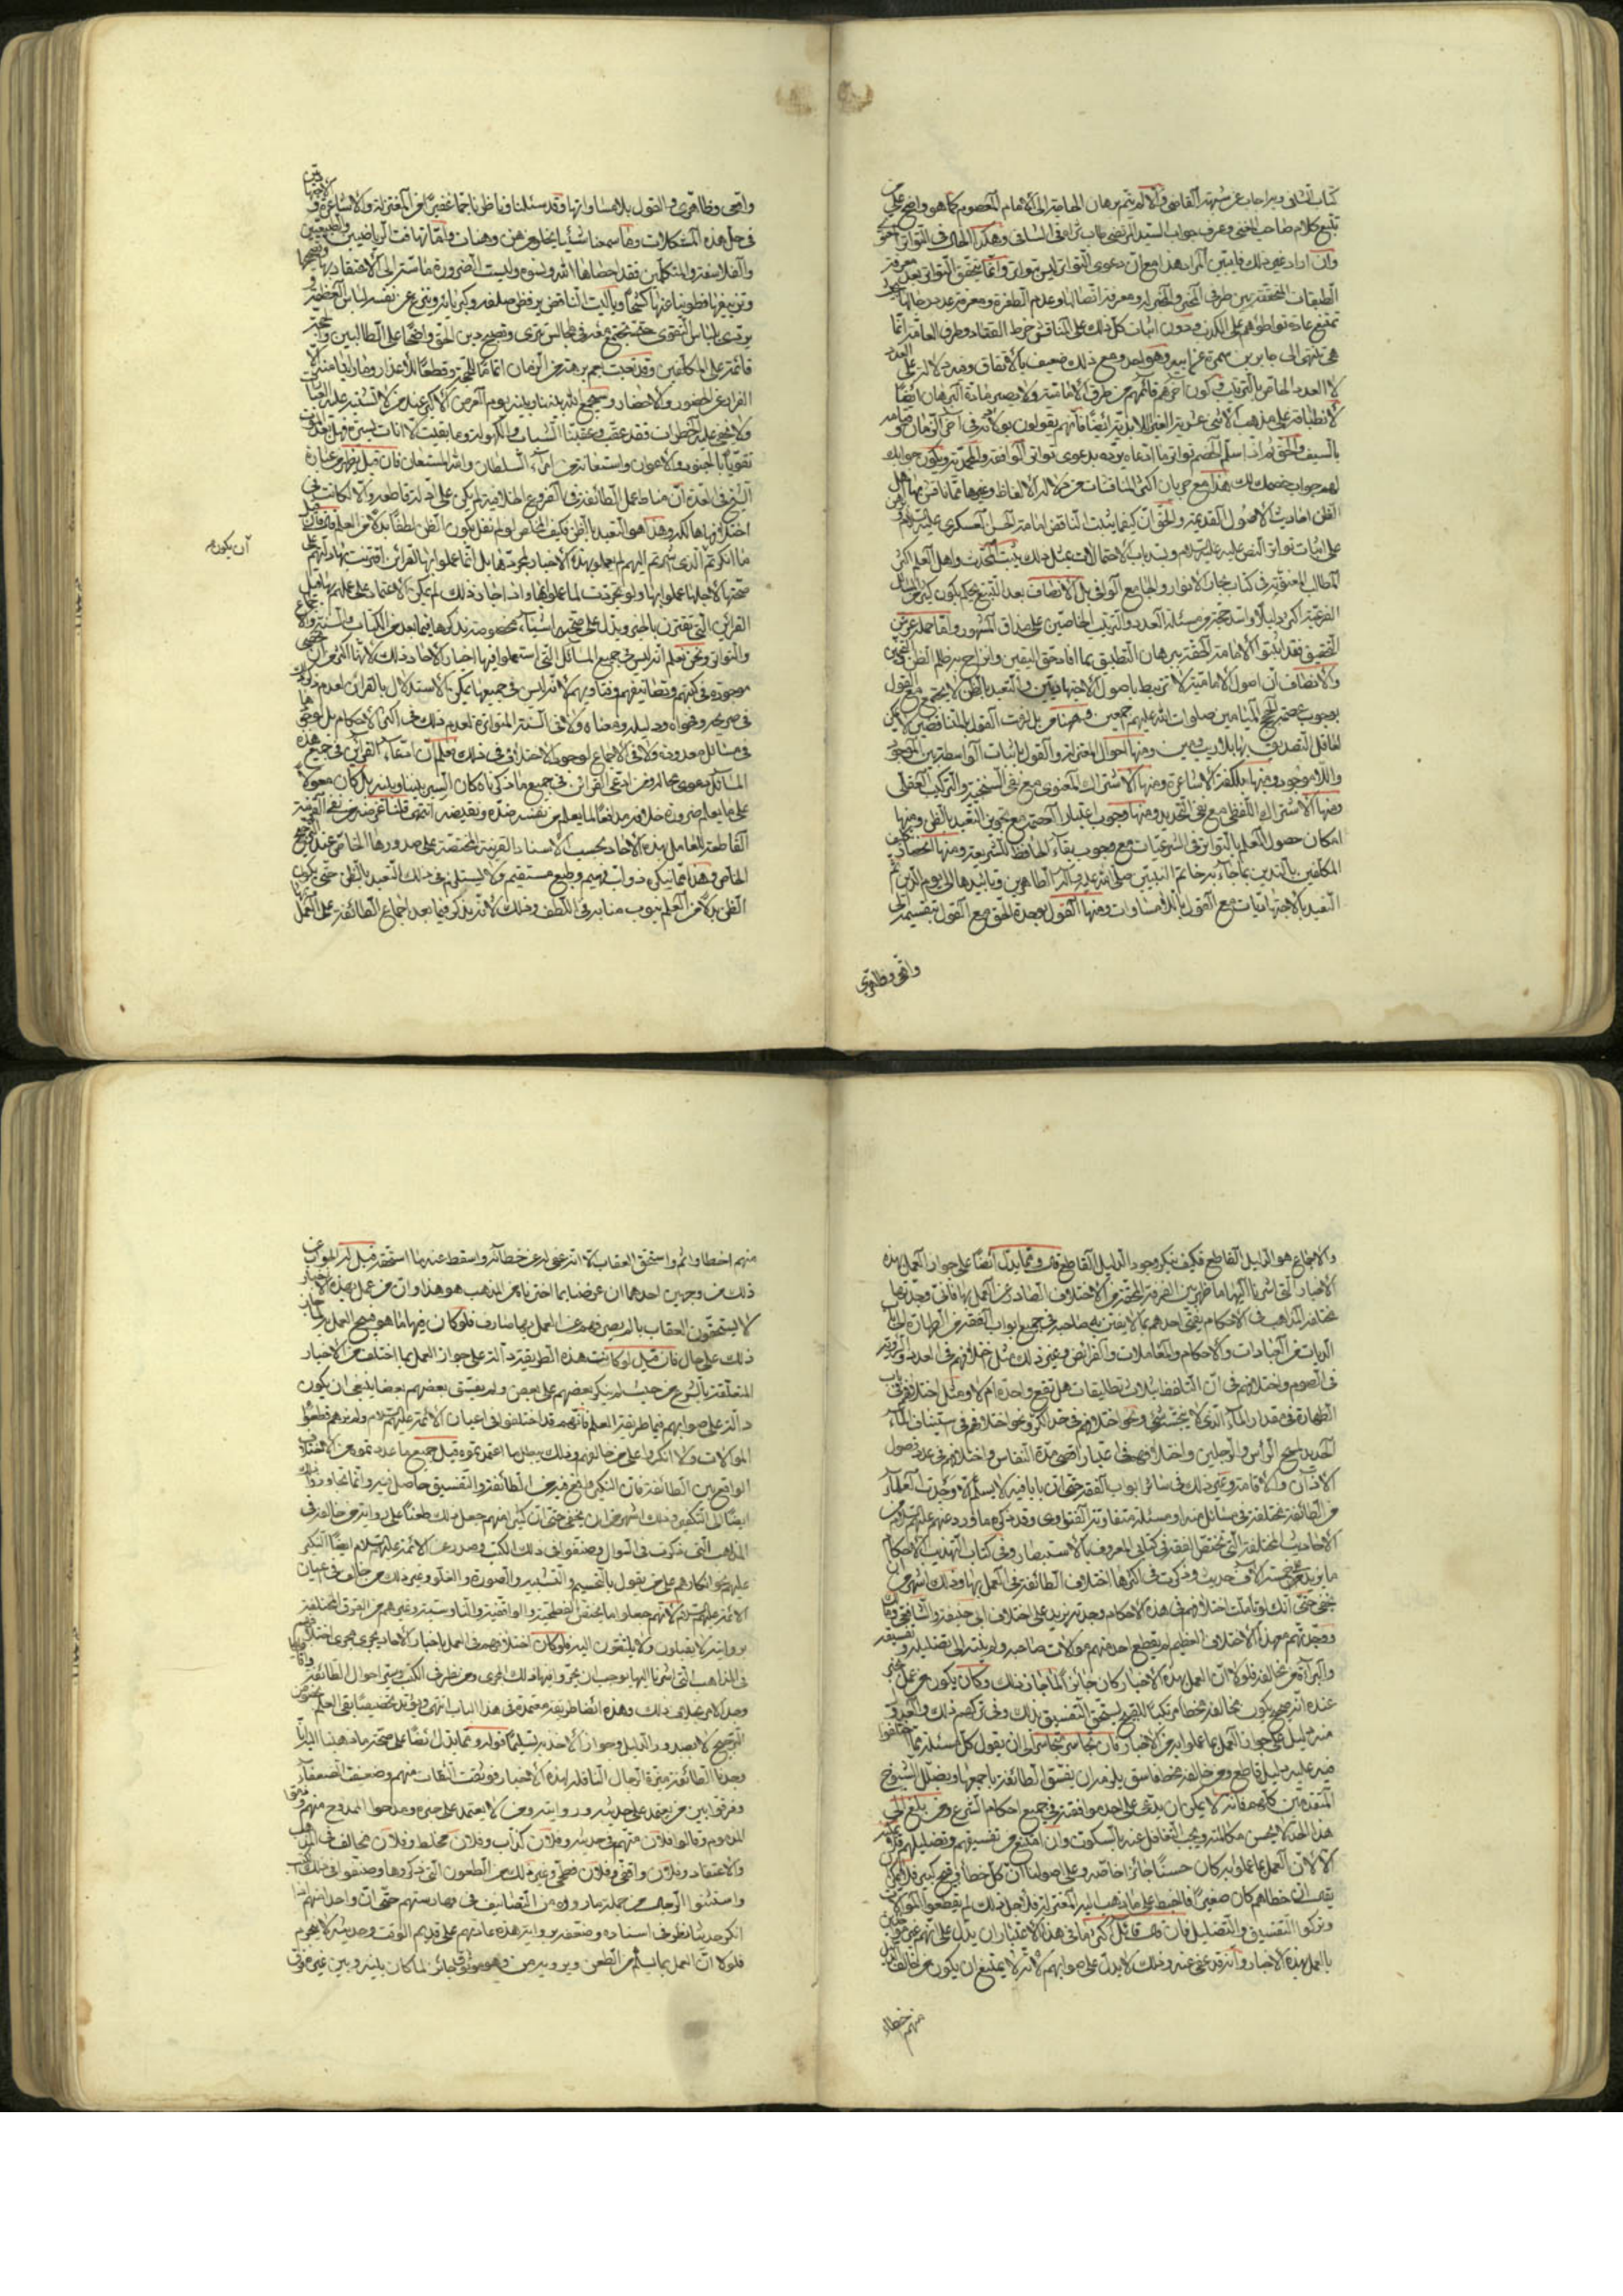 كتاب الشافى وبراجاب عن شبهة القاضى والا لم يتم برهان الحاجة الى الامام المعصوم كما هو واضح على من
تتبع كلام صاحب المغنى وعرف جواب السيد المرتضى فى الشافى وهكذا الحال فى التواتر
وان اراد غير ذلك فليبين المراد هذا مع ان دعوى التواتر ليس بتواتر وانما يتحقق التواتر بعد معرفة
الطبقات المتحققة بين طرفى المخبر والمخبر له ومعرفة اتصالها وعدم الطفرة ومعرفة عدد رجالها
تمتنع عادة تواطؤهم على الكذب ودون اثبات كل ذلك على المناقض خرط القتاد وطرق العامة انما
هى تنتهى الى جابر بن سمرة عن ابيه وهو واحد ومع ذلك ضعيف بالاتفاق ومنه دلالة على العدد
لا العدد الخاص بالترتيب وكون اخرهم قائمهم من طرق الامامية ولا يصير مادة البرهان ايضا
بالسيف والحق انه اذا سلم الخصم تواتر ما ادعاه يرد بدعوى تواتر الواقفة والمحمدية ويكون جوابك
لهم جواب خصمك لك هذا مع جريان اكثر المناقشات من دلالة الالفاظ وغيرها مما ناقش بها اهل
الظن احاديث الاصول القديمة والحق ان كيفما يثبت المناقض امامة الحسن العسكرى عليه السلام
على اثبات تواتر النص عليه عليه السلام وسد باب الاحتمالات بمثل ذلك يثبت المحدث واهل العلم اكثر
المطالب المعنوية فى كتاب بحار الانوار والجامع الوافى بل الانصاف بعد التتبع يحكم بكون كثير من المسائل
الفرعية اكثر دليلا واسد حجة من مسئلة العدد والترتيب الخاصين على مذاق المشهور واما جملة من
التحقيق فقد اثبتوا الامامة الحقة ببرهان التطبيق بما افاد حق اليقين وازاح به ظلم الظن والتخمين
والانصاف ان اصول الامامية لا ترتبط باصول الاجتهاديين والتعبد بالظن لا يجتمع مع القول
بوجوب عصمة الحجج الميامين صلوات الله عليهم اجمعين
لعاقل التصديق بها بلا ريب ومين ومنها احوال المعتزلة والقول باثبات الواسطة بين الموجود
واللاموجود ومنها بلكفة الاشاعرة ومنها الاشتراك المعنوى مع نفى السنخية والتركيب العقلى
ومنها الاشتراك اللفظى مع نفى التحديد ومنها وجوب اعتبار العصمة مع تجويز التعبد بالظن ومنها
امكان حصول العلم بالتواتر فى الشرعيات مع وجوب بقاء الحافظ للشريعة ومنها انحصار تكليف
المكلفين بالتدين بما جاء به خاتم النبيين صلى الله عليه وآله الطاهرين وتابيدها الى يوم الدين ثم
التعبد بالاجتهاديات مع القول باللامساوات ومنها القول بوحدة الحق مع القول بتقسيمه الى
واقعى وظاهرى
واقعى وظاهرى والقول بلا مساواتها وقد سئلنا وناظرنا جما غفيرا من المعتزلة والاشاعرة
فى حل هذه المشكلات وما سمعنا شيئا يخلو عن هن وهنات واما تهافت الرياضيين والطبيعيين
والفلاسفة والمتكلمين فقد احصاها الله ونسوه وليست الضرورة ماسة الى الاعتقاد بها وتصحيحها
وتزييفها فطوينا عنها كشحا ويا ليت المناقض يرفض صلفه وكبريائه وينزع عن نفسه لباس العظمة
يرتدى بلباس التقوى حتى نجتمع معه فى مجالس تترى ونصحح دين الحق واضحا على الطالبين والحجة
قائمة على المكلفين
الفرار عن الحضور والاحضار وسيجمع الله بيننا وبينه يوم العرض الاكبر
تقويا بالجنود والاعوان واستعانة من امراء السلطان والله المستعان فان قيل يظهر من عبارة
الشيخ فى العدة ان مناط عمل الطائفة فى الفروع الخلافية لم يكن على ادلة قاطعة والا لكانت
اختلافها هالكة وهذا هو التعبد بالظن بكيف الخاص لو لم نقل بكون الظن لطفا بدلا من العلم فان قيل
ما انكرتم ان الذى اشرتم اليهم لم يعملوا بهذه الاخبار بمجردها بل انما عملوا بها لقرائن اقترنت بها دلتهم على
صحتها لاجلها عملوا بها ولو تجردت لما عملوا بها واذا جاز ذلك لم يمكن الاعتماد على عملهم بها قيل
القرائن التى تقترن بالخبر ويدل على صحته اشياء مخصوصة نذكرها فيما بعد من الكتاب والسنة والاجماع
والتواتر ونحن نعلم انه ليس فى جميع المسائل التى استعملوا فيها اخبار الاحاد ذلك لانها اكثر من ان تحصى
موجودة فى كتبهم وتصانيفهم وفتاويهم لانه ليس فى جميعها يمكن الاستدلال بالقرائن لعدم ذكر ذلك
فى صريحه وفحواه ودليله ومعناه ولا فى السنة المتواترة لعدم ذلك فى اكثر الاحكام بل لوجودها
فى مسائل معدودة ولا فى الاجماع لوجود الاختلاف فى ذلك فعلم ان ادعاء القرائن فى جميع هذه
المسائل دعوى محالة ومن ادعى القرائن فى جميع ما ذكرناه كان السبر بيننا وبينه بل كان معولا
على ما يعلم ضرورة خلافه مدافعا لما يعلم من نفسه ضده ونقيضه انتهى
القاطعة للعامل بهذه الاخاد بحسب الاسناد القرينة المختصة على صدورها الخاص عند
الخاص وهذا مما ينكره ذو لب فهيم وطبع مستقيم ولا يستلزم ذلك التعبد بالظن حتى يكون
الظن بدلا من العلم ينوب منابه فى اللطف وذلك لانه يذكر فيما بعد اجماع الطائفة على العمل
آن يكون م
والاجماع هو الدليل القاطع فكيف ينكر وجود الدليل القاطع قال ومما يدل ايضا على جواز العمل بهذه
الاخبار التى اشرنا اليها ما ظهر بين الفرقة المحقة من الاختلاف الصادر عن العمل بها فانى وجدتها
مختلفة المذاهب فى الاحكام يفتى احدهم بما لا يفتى به صاحبه فى جميع ابواب الفقه من الطهارة الى باب
الديات من العبادات والاحكام والمعاملات والفرائض وغير ذلك مثل اختلافهم فى العدد والرؤية
فى الصوم واختلافهم فى ان التلفظ بثلاث تطليقات هل تقع واحدة ام لا ومثل اختلافهم فى باب
الطهارة فى مقدار الماء الذى لا ينجسه شئ ونحو اختلافهم فى حد الكر ونحو اختلافهم فى استيناف الماء
الجديد لمسح الراس والرجلين واختلافهم فى اعتبار اقصى مدة النفاس واختلافهم فى عدد فصول
الاذان والاقامة وغير ذلك فى سائر ابواب الفقه حتى ان بابا منه لا يسلم الا وجدت العلماء
من الطائفة مختلفة فى مسائل منه او مسئلة متفاوتة الفتاوى وقد ذكرت ما ورد عنهم عليهم السلام من
الاحاديث المختلفة التى تختص الفقه فى كتابى المعروف بالاستبصار وفى كتاب تهذيب الاحكام
ما يزيد على خمسة الاف حديث وذكرت فى اكثرها اختلاف الطائفة فى العمل بها وذلك اشهر من ان
يخفى حتى انك لو تاملت اختلافهم فى هذه الاحكام وجدته يزيد على اختلاف ابى حنيفة والشافعى ومالك
ووجدتهم مع هذا الاختلاف العظيم لم يقطع احد منهم موالات صاحبه ولم ينته الى تضليله وتفسيقه
والبراءة من مخالفه فلولا ان العمل بهذه الاخبار كان جائزا لما جاز ذلك وكان يكون من عمل بخبر
عنده انه صحيح يكون مخالفه مخطئا مرتكبا للقبيح يستحق التفسيق بذلك وفى تركهم ذلك والعدول
منه دليل على جواز العمل بما عملوا به من الاخبار فان تجاسر متجاسر الى ان يقول كل مسئلة مما اختلفوا
فيه عليه دليل قاطع ومن خالفه مخطئ فاسق يلزمه ان يفسق الطائفة باجمعها ويضلل الشيوخ
المتقدمين كلهم فانه لا يمكن ان يدعى على احد موافقته فى جميع احكام الشرع ومن بلغ الى
هذا الحد لا يحسن مكالمته ويجب التغافل عنه بالسكوت وان امتنع من تفسيقهم وتضليلهم فلا يمكنه
الا لان العمل بما عملوا به كان حسنا جائزا خاصة وعلى اصولنا ان كل خطأ وقبيح كبير فلا يمكن
يقال ان خطاهم كان صغيرا فانحبط على ما يذهب اليه المعتزلة فلاجل ذلك لم يقطعوا الموالات
وتركوا التفسيق والتضليل فان قال قائل اكثر ما فى هذا الاعتبار ان يدل على انهم غير مؤاخذين
بالعمل بهذه الاخبار وانه قد عفى عنه وذلك لا يدل على صوابهم لانه لا يمتنع ان يكون من خالف
منهم خطاء
منهم اخطأ واثم واستحق العقاب الا انه عفى له عن خطائه واسقط عنه ما استحقه قيل له الجواب عن
ذلك من وجهين احدهما ان غرضنا بما اخترناه من المذهب هو هذا وان من عمل بهذه الاخبار
لا يستحقون العقاب بالمرة
ذلك على حال فان قيل لو كانت هذه الطريقة دالة على جواز العمل بما اختلف من الاخبار
المتعلقة بالشرع من حيث لم ينكر بعضهم على بعض ولم يفسق بعضهم بعضا ينبغى ان يكون
دالة على صوابهم فيما طريقه العلم فانهم قد اختلفوا فى اعيان الائمة عليهم السلام ولم نرهم قطعوا
الموالات ولا انكروا على من خالفهم وذلك يبطل ما اعتمدتموه قيل جميع ما عددتموه من الاختلاف
الواقع بين الطائفة فان النكير واقع فيه من الطائفة والتفسيق حاصل فيه وانما تجاوزوا ذلك
ايضا الى التكفير وذلك اشهر من ان يخفى حتى ان كثيرا منهم جعل ذلك طعنا على رواية من خالفه فى
المذاهب التى ذكرت فى السوال وصنفوا فى ذلك الكتب وصدر عن الائمة عليهم السلام ايضا النكير
عليهم نحو انكارهم على من يقول بالتجسيم والتشبيه والصورة والغلو وغير ذلك من خالف فى اعيان
الائمة عليهم السلام لانهم جعلوا ما يختص الفطحية والواقفة والناووسية وغيرهم من الفرق المختلفة
بروايته لا يقبلون ولا يلتفتون اليه فلو كان اختلافهم فى العمل باخبار الاحاد يجرى مجرى اختلافهم
فى المذاهب التى اشرنا اليها لوجب ان يجروا فيها ذلك المجرى ومن نظر فى الكتب وسبر احوال الطائفة
وجد الامر بخلاف ذلك وهذه ايضا طريقة معتمدة فى هذا الباب انتهى
الترجيح لا بصدور الدليل وجواز الاخذ به تسليما قوله ومما يدل ايضا على صحة ما ذهبنا اليه انا
وجدنا الطائفة ميزت الرجال الناقلة لهذه الاخبار فوثقت الثقات منهم وضعفت الضعفاء
وفرقوا بين من يعتمد على حديثه وروايته ومن لا يعتمد على خبره ومدحوا الممدوح منهم وذموا
المذموم وقالوا فلان متهم فى حديثه وفلان كذاب وفلان مخلط وفلان مخالف فى المذهب
والاعتقاد وفلان واقفى وفلان فطحى وغير ذلك من الطعون التى ذكروها وصنفوا فى ذلك الكتب
واستثنوا الرجال من جملة ما رووه من التصانيف فى فهارستهم حتى ان واحدا منهم اذا
انكر حديثا نظر فى اسناده وضعفه بروايته هذه عادتهم على قديم الوقت وحديثه لا ينخرم
فلولا ان العمل بما يسلم من الطعن ويرويه من هو موثوق به جائز لما كان بينه وبين غيره فرق